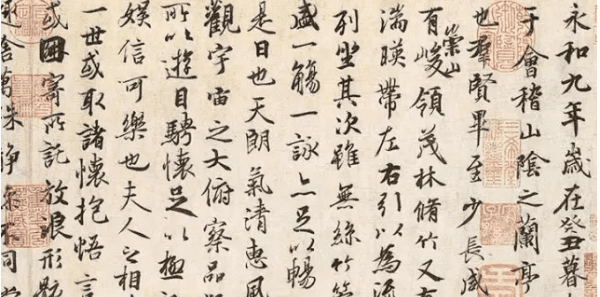 永和九年歲在癸丑暮
于會稽山陰之蘭亭
也羣賢畢至少長咸
有崇山峻領茂林脩竹又
湍暎帶左右引以為流
列坐其次雖無絲竹管
盛一觴一詠亦足以暢
是日也天朗氣清惠風
觀宇宙之大俯察品類
所以遊目騁懷足以極
娛信可樂也夫人之相
一世或取諸懷抱悟言
或因寄所託放浪形骸
舍萬殊静躁不同當